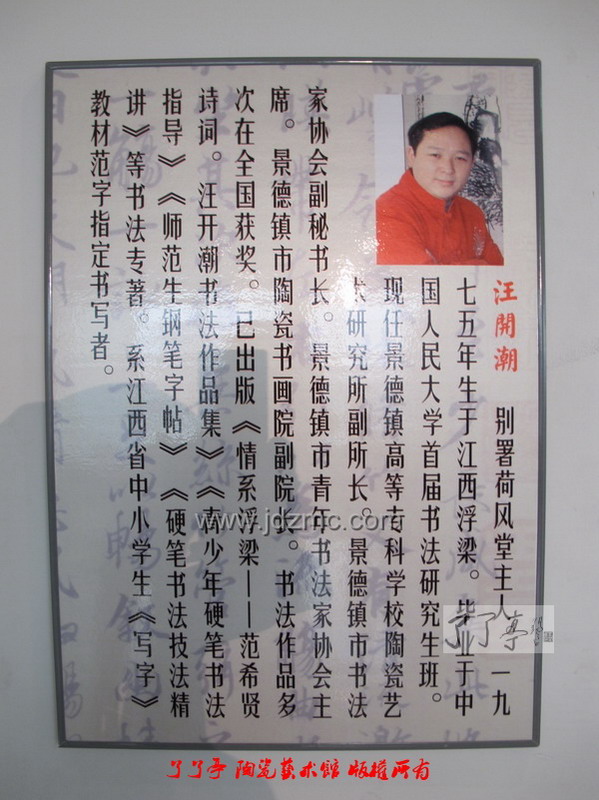 汪開潮 别署荷风堂主人。一九
七五年生于江西浮梁。毕业于中
国人民大学首届书法研究生班。
现任景德镇高等专科学校陶瓷艺
术研究所副所长。景德镇市书法
家协会副秘书长。景德镇市青年书法家协会主
席。景德镇市陶瓷书画院副院长。书法作品多
次在全国获奖。已出版《情系浮梁——范希贤
诗词。汪开潮书法作品集》《青少年硬笔书法
指导》《师范生钢笔字帖》《硬笔书法技法精
讲》等书法专著。系江西省中小学生《写字》
教材范字指定书写者。
www.jdzmc.com
了了亭
了了亭 陶瓷藝术館 版權所有